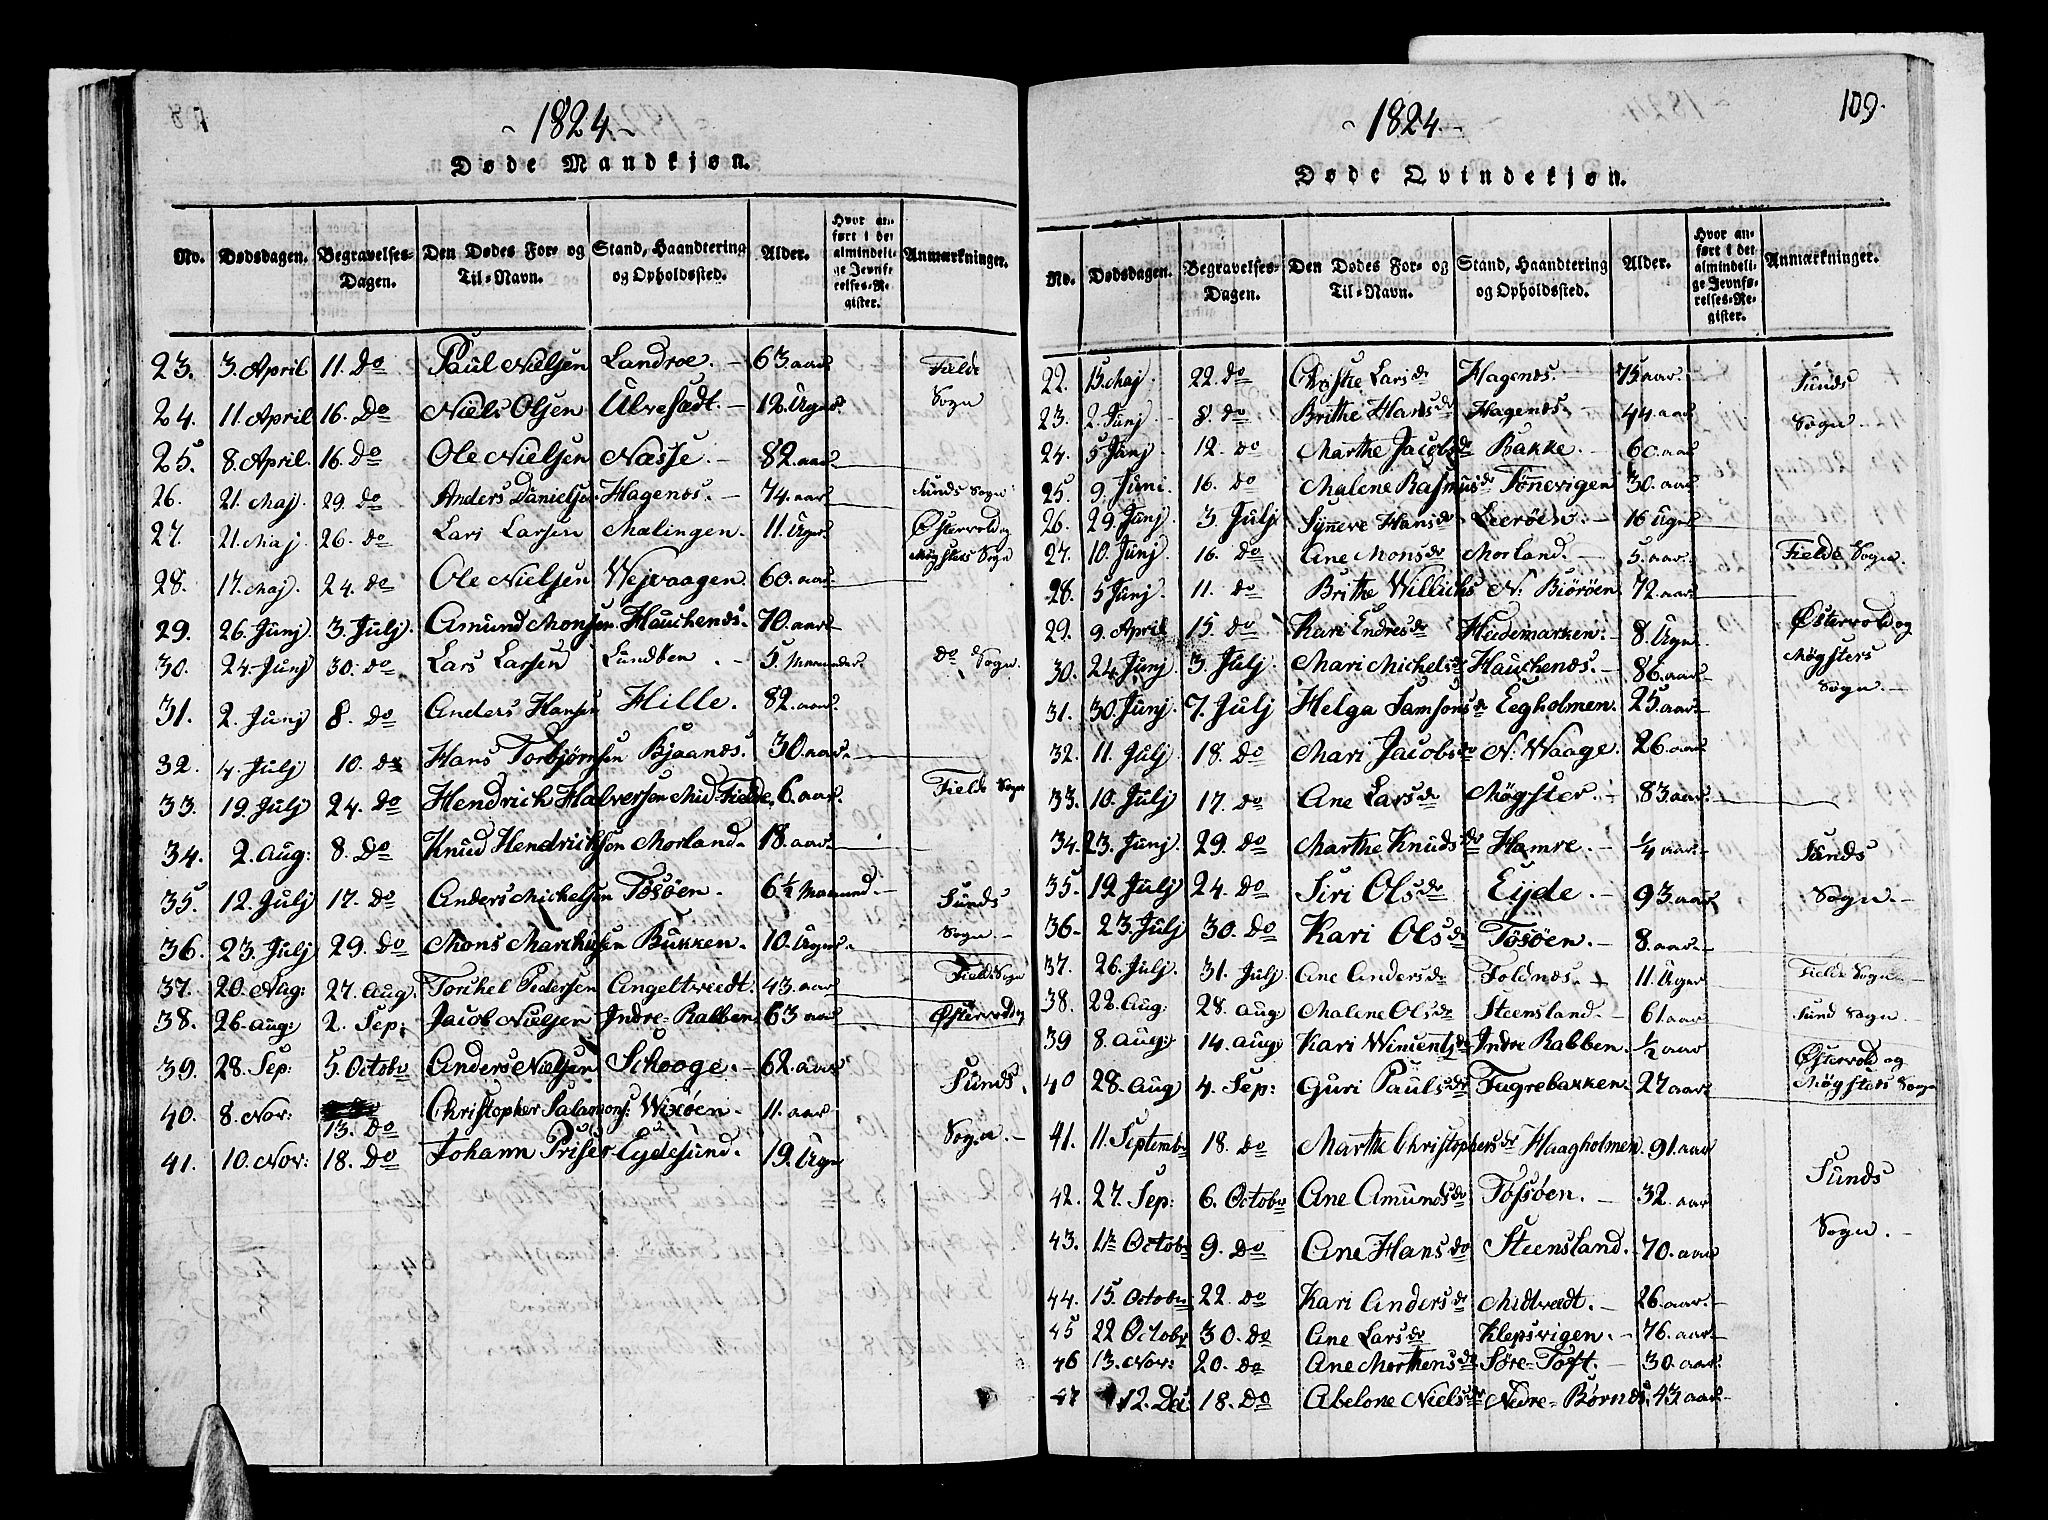 - 1824 -
Døde Mandkjøn.
No. Dødsdagen. Begravelses-Dagen. Den Dødes For- og Til-Navn. Stand, Haandtering og Opholdssted. Alder. Hvor anført i det almindelige Jevnførelses-Register. Anmærkninger.
23. 3. April 11. Do Paul Nielsen Landroe. - 63. aar Fielde
24. 11. April 16. Do Niels Olsen Ulvesadt. - 12. Uger Sogn
25. 8. April. 16. Do Ole Nielsen Næsse. - 82. aar
26. 21. Maj 29. do Anders Danielsen Hagenæs. - 74. aar Sunds Sogn
27. 21. Maj 26. do Lars Larsen Mælingen. 11. Uger. Østervold og
28. 17. Maj. 24. do Ole Nielsen Wejvaagen. 60. aar Møgsters Sogn
29. 26. Junj 3. Julj. Amund Monsen Hauchenæs. 70. aar
30. 24. Junj 30. do Lars Larsen Lundben. - 5. Maaneder do Sogn.
31. 2. Junj 8. do Anders Hansen Hille. 82. aar.
32. 4. Julj 10. do Hans Torbjørnsen Bjaanæs. 30. aar.
33. 19. Julj 24. do Hendrich Halversen Mid-Fielde. 6. aar. Fielde Sogn
34. 2. Aug: 8. Do Knud Hendrichsen Morland. 18. aar
35. 12. Julj 17. do Anders Michelsen Tösöen. 6 1/2 Maaned. - Sunds
36. 23. Julj 29. Do Mons Marchusen Bukken. 10. Uger. Sogn -
37. 20. Aug: 27. Aug. Torchel Pedersen Angeltvedt. 43. aar Fielde Sogn
38. 26. Aug: 2. Sep: Jacob Nielsen Indre-Rabben 63 aar Østervold og
39. 28. Sep: 5. Octobr Anders Nielsen Schooge. - 62. aar Sunds
40. 8. Nov: 13. Do Christopher Salamons: Wixöen. 11. aar
41. 10. Nov: 18. Do Johann Priser Eydesund. 19. Uger Sogn. -
- 1824. - 109.
Døde Qvindekjøn.
No. Dødsdagen. Begravelses-Dagen. Den Dødes For- og Til-Navn. Stand, Haandtering og Opholdssted. Alder. Hvor anført i det almindelige Jevnførelses-Register. Anmærkninger.
22. 15. Maj. 22. do Christie Larsdr Hagenæs. - 75. aar. Sunds
23. 2. Junj 8. do Brithe Hansdr Hagenæs. - 44. aar Sogn.
24. 5. Junj 12. do Marthe Jacobsdr Bakke. - 60. aar
25. 9. Juni 16. do Malene Rasmusdr Tönevigen 30. aar
26. 29. Junj 3. Julj Synneve Hansdr Leeröen. - 16 Uger
27. 10. Junj 16. do Ane Monsdr Morland. - 5. aar. Fielde Sogn.
28. 5 Junj. 11. do Brithe Willichs N: Biöröen 72. aar
29. 9. April 15. do Kari Endresdr Heidemarken. - 8. Uger. Østervold og
30. 24. Junj 3. Julj. Mari Michelsdr Hauchenæs. - 86. aar Møgsters
31. 30. Junj. 7. Julj Helga Samsonsdr Eegholmen. 25. aar Sogn. -
32. 11. Julj 18. Do Mari Jacobsdr N: Waage. 26. aar
33. 10. Julj 17. do Ane Larsdr Møgster. - 83. aar
34. 23. Junj. 29. do Marthe Knudsdr Hamre. - 1/4 aar. Sunds
35. 19. Julj 24. do Siri Olsdr Eyde. - 93. aar Sogn. -
36. 23. Julj 30. Do Kari Olsdr Tösöen. - 8. aar.
37. 26. Julj. 31. Julj Ane Andersdr Foldnæs. - 11. Uger Fielde Sogn
38. 22. Aug: 28. Aug: Malene Olsdr Steensland. - 61. aar Sund Sogn.
39 8. Aug: 14. Aug: Kari Wincentzdr Indre Rabben. 1/2 aar Østervold og
40 28. Aug 4. Sep: Guri Paulsdr Fugrebakken 27 aar Møgsters Sogn
41. 11. Septembr 18. do Marthe Christophersdr Haagholmen. 91. aar
42. 27. Sep: 6. Octobr Ane Amundsdr Tösöen. - 32. aar Sunds
43. 1ste Octobr 9. Do Ane Hansdr Steensland. 70. aar Sogn. -
44. 15. Octobr 22. do Kari Andersdr Midtvedt. - 26. aar. -
45 22 Octobr 30. do Ane Larsdr Klepsvigen. - 76. aar.
46 13. Nov: 20. do Ane Mortensdr Söre-Toft. - 30. aar
47 12. De: 18. Do Abelone Nielsdr Nedre-Börnæs. 43 aar